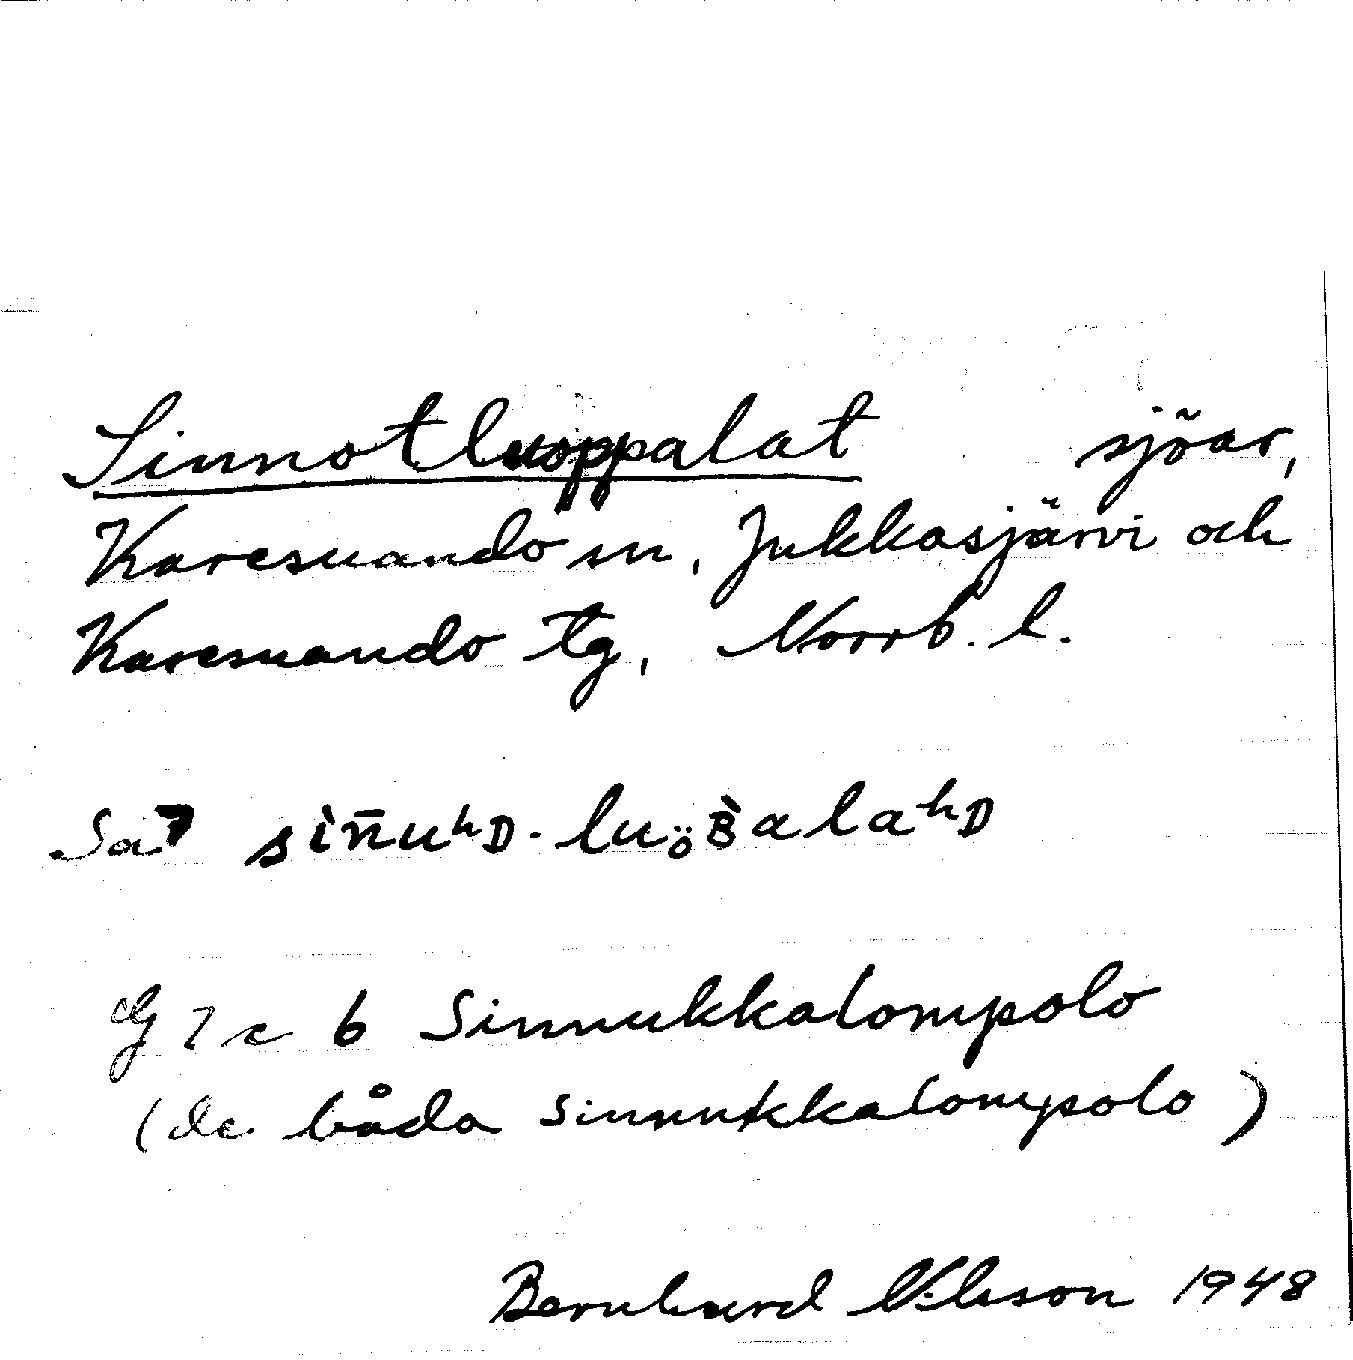 Sinnotluoppalat sjöar,
Karesuando sn, Jukkasjärvi och
Karesuando tg, Norrb. l.
Sa7 sìn̄uʰᴅ·luo̤ʙ̀alaʰᴅ
b Sinnukkalompolo
(de båda sinnukkalompolo)
Bernhard Nilsson 1948